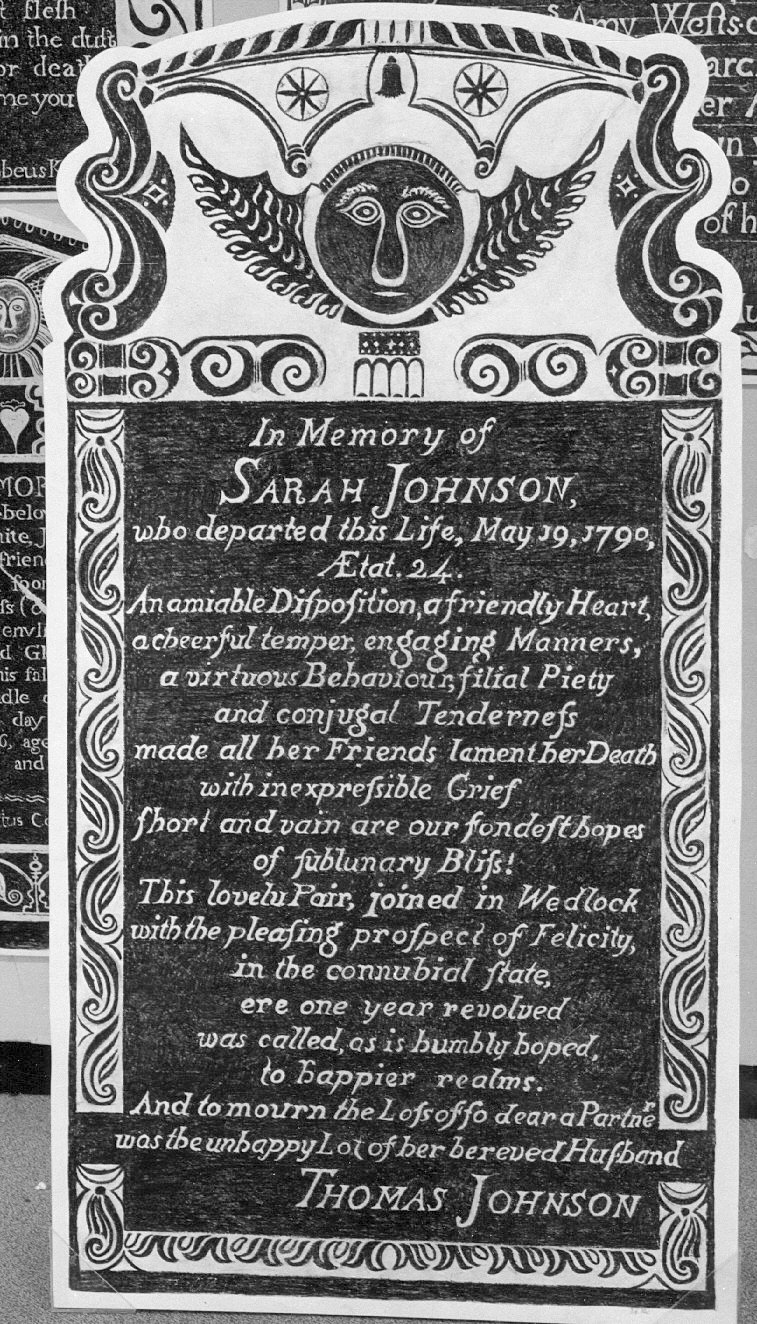 t fleſh
in the duſt
or deat
me you
beus K
Amy Weſts
arc
er A
of h
In Memory of
SARAH JOHNSON,
who departed this Life, May 19, 1790,
Ætat. 24.
An amiable Diſpoſition, a friendly Heart,
a cheerful temper, engaging Manners,
a virtuous Behaviour, filial Piety
and conjugal Tenderneſs
made all her Friends lament her Death
with inexpreſsible Grief
ſhort and vain are our fondeſt hopes
of ſublunary Bliſs!
This lovely Pair, joined in Wedlock
with the pleaſing proſpect of Felicity,
in the connubial ſtate,
ere one year revolved
was called, as is humbly hoped,
to happier realms.
And to mourn the Loſs of ſo dear a Partner
was the unhappy Lot of her bereved Huſband
THOMAS JOHNSON
MOR
belo
hite, J
frien
ſoon
envi
d Gl
his fal
dle
day
6, age
and
tus Co